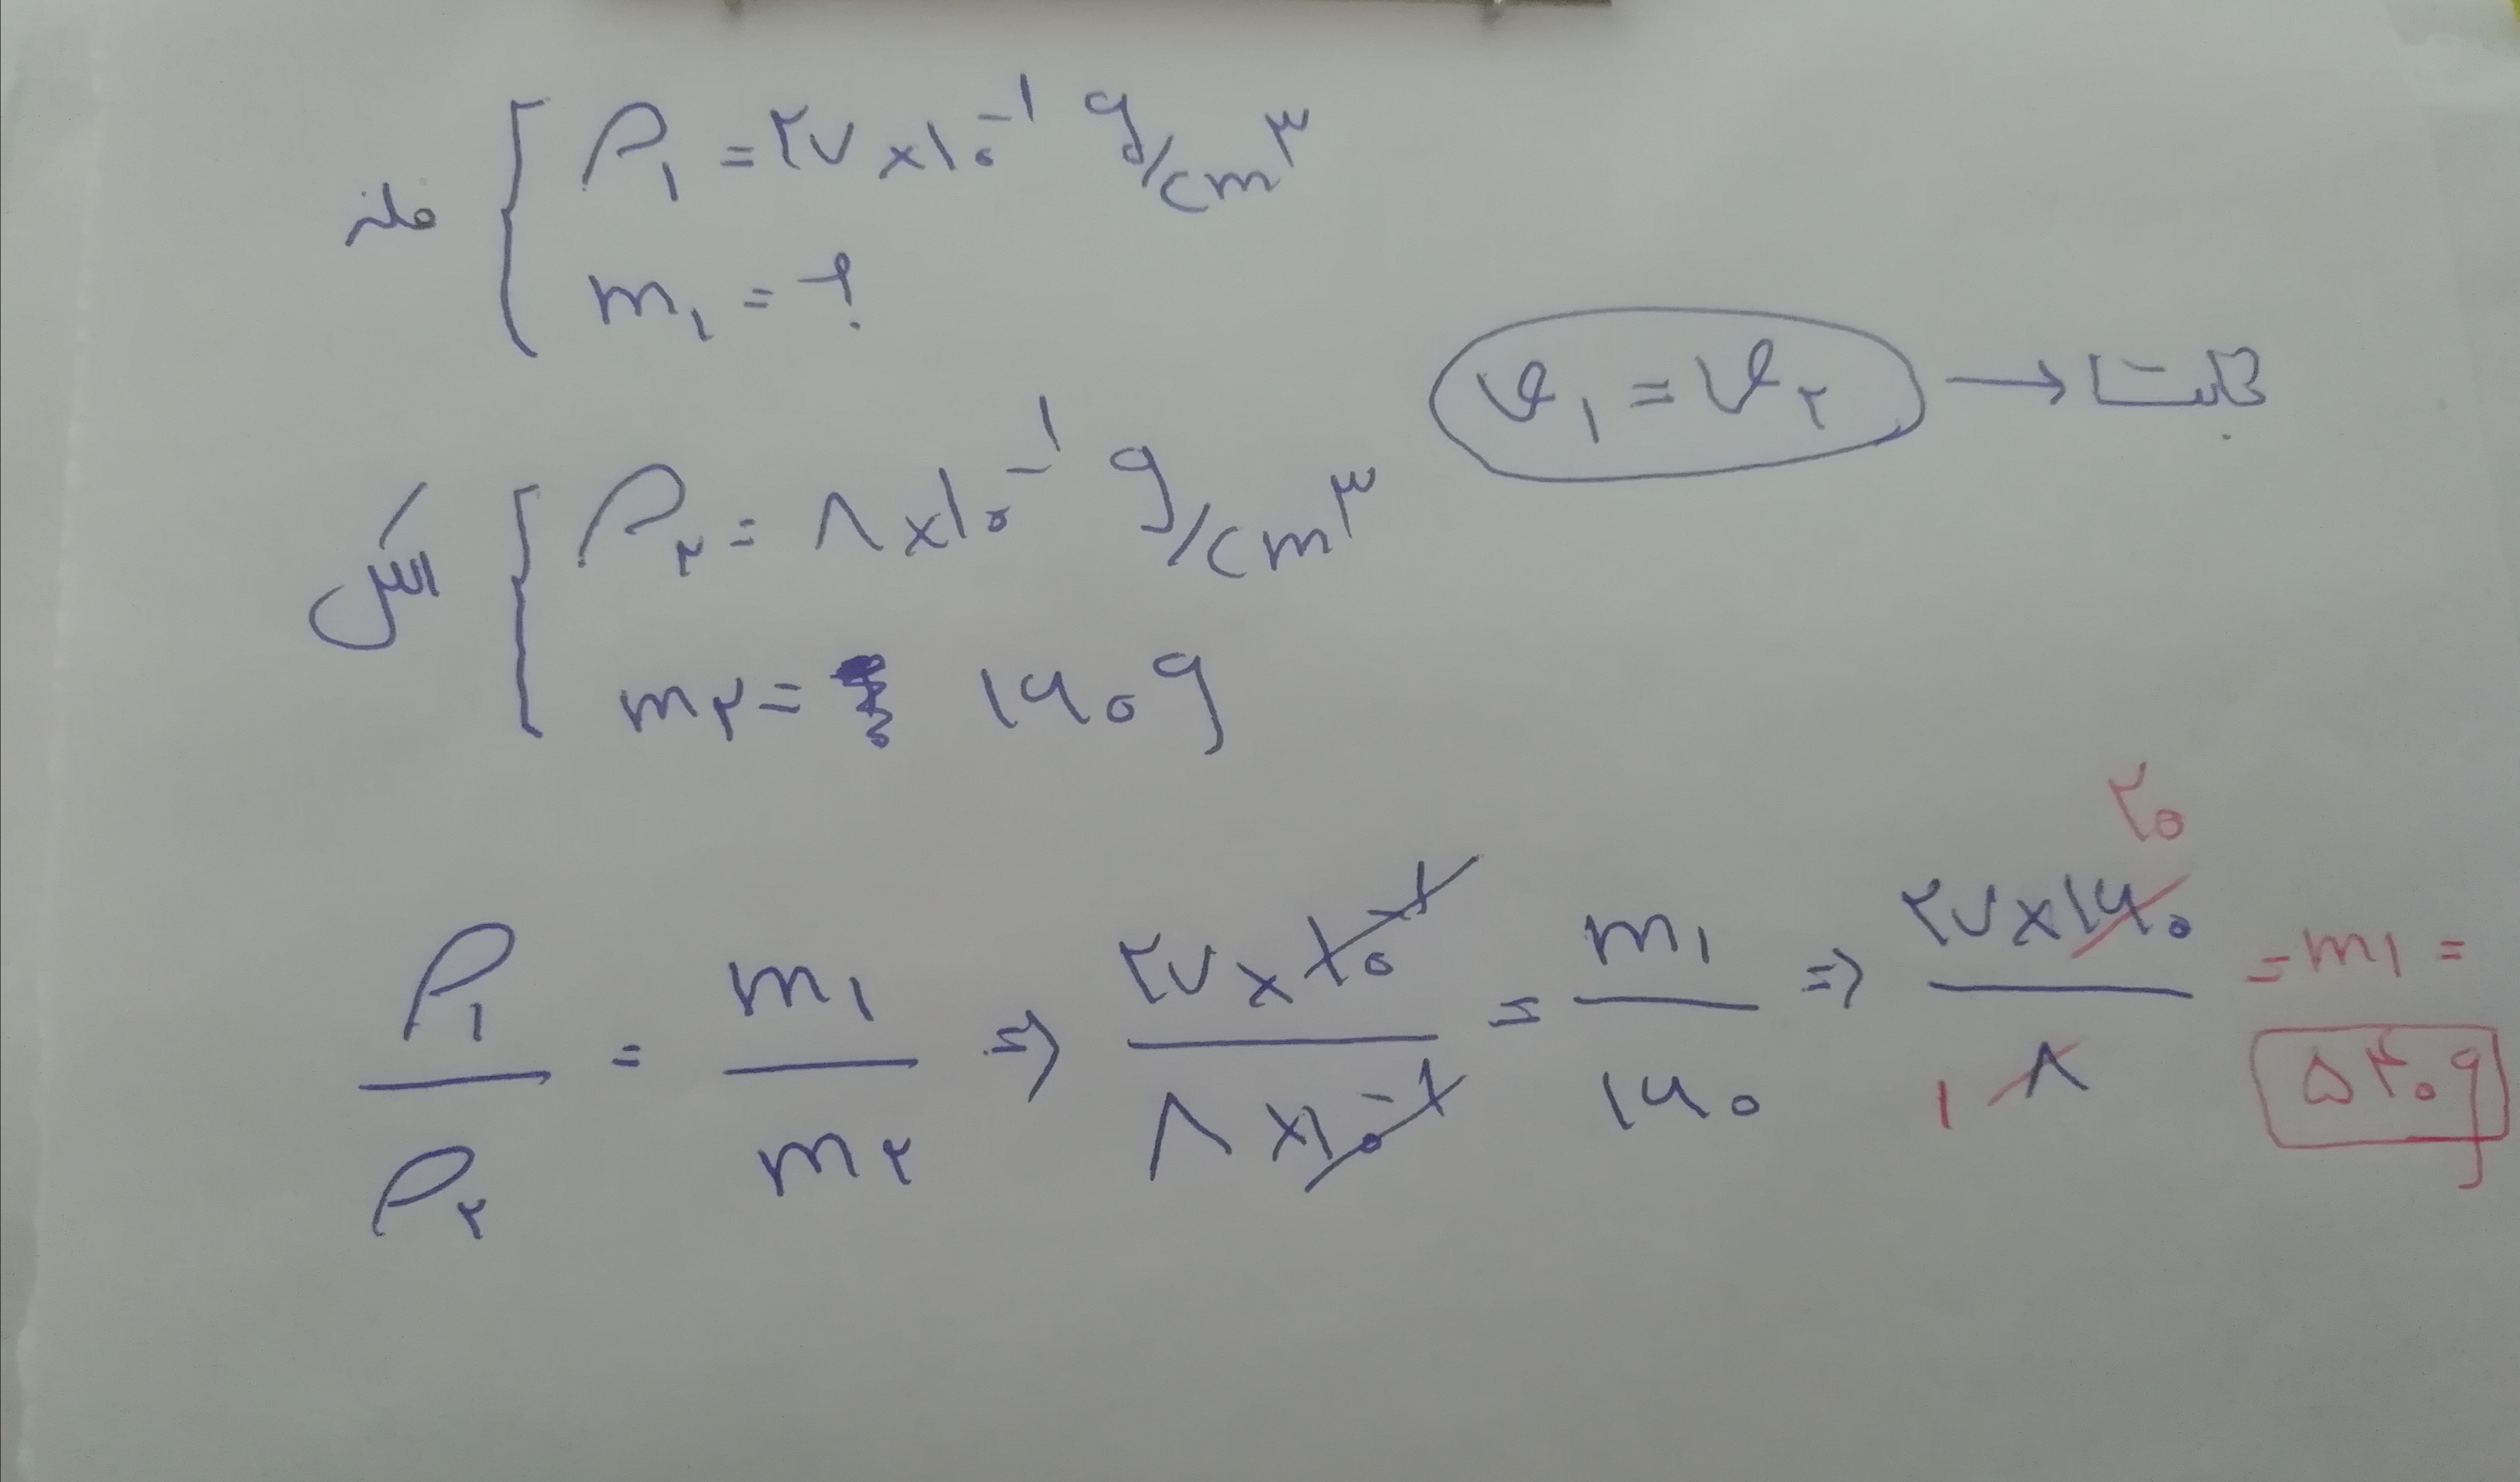 فلز { ρ۱ = ۲۷ × ۱۰^-۱ g/cm^۳
m۱ = ؟
v۱ = v۲ → ثابت
الکل { ρ۲ = ۸ × ۱۰^-۱ g/cm^۳
m۲ = ۱۶۰ g
ρ۱/ρ۲ = m۱/m۲ ⇒ ۲۷ × ۱۰^-۱ / ۸ × ۱۰^-۱ = m۱/۱۶۰ ⇒ ۲۷ × ۱۶۰ / ۸ = m۱ =
۲۰
۱
۵۴۰ g